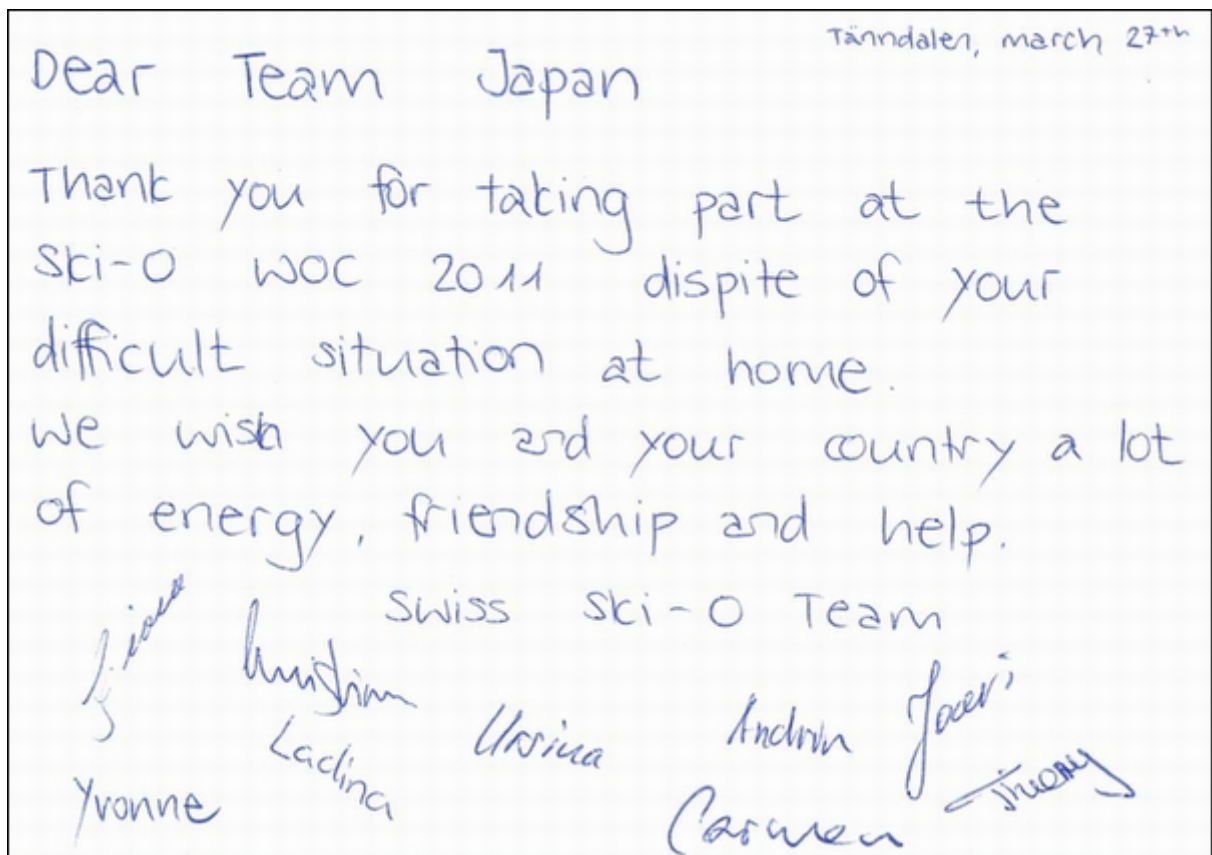 Tänndalen, march 27th
Dear Team Japan
Thank you for taking part at the
Ski-O WOC 2011 dispite of your
difficult situation at home.
We wish you and your country a lot
of energy, friendship and help.
Swiss Ski-O Team
Ladina
Ursina
Andrin
Yvonne
Carmen